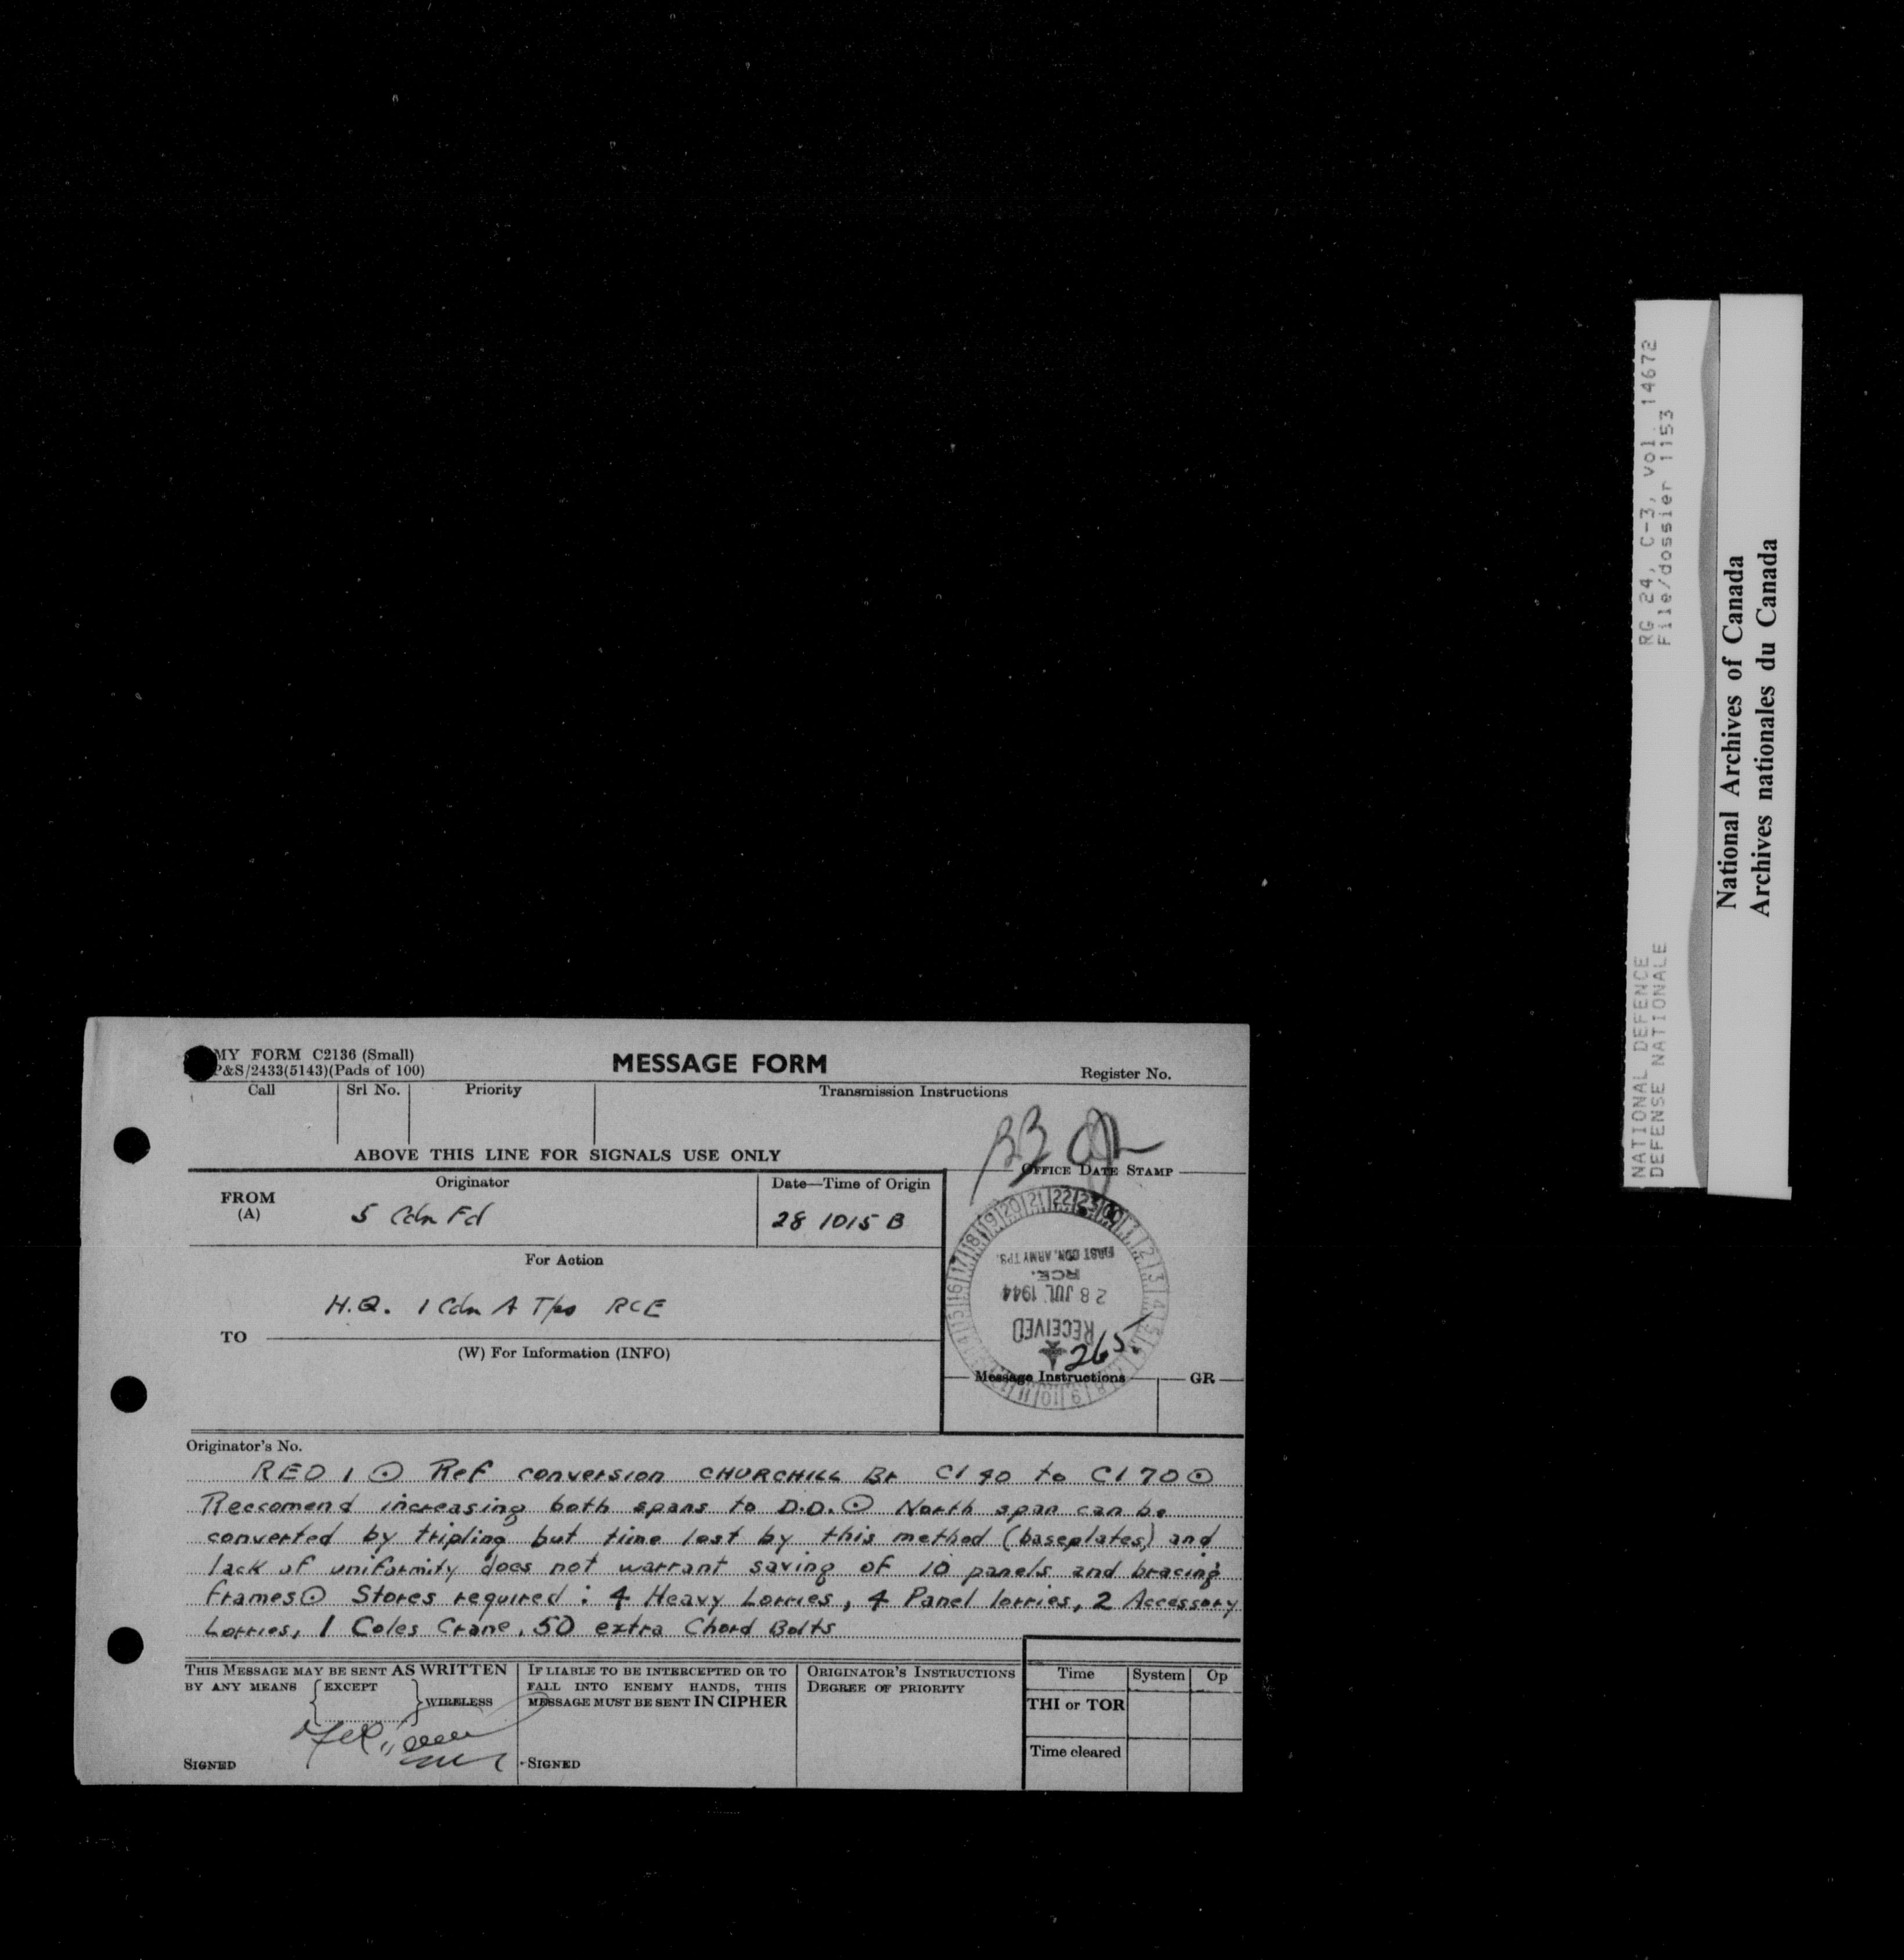 MY FORM C2136 (Small)
P&S/2433(5143)(Pads of 100)
MESSAGE FORM
Register No.
Call
Srl No.
Priority
Transmission Instructions
ABOVE THIS LINE FOR SIGNALS USE ONLY
OFFICE DATE STAMP
FROM
(A)
Originator
5 Cdn Fd
Date—Time of Origin
28 1015 B
For Action
H.Q. 1 Cdn A Tps RCE
TO
(W) For Information (INFO)
16 17 18 19 20 21 22 23 00 1 2 3 4 5
FIRST CDN. ARMY TPS.
RCE.
28 JUL 1944
RECEIVED
265.
Message Instructions
GR
Originator's No.
RED 1 ⊙ Ref conversion CHURCHILL Br Cl 40 to Cl 70 ⊙
Reccomend increasing both spans to D.D. ⊙ North span can be
converted by tripling but time lost by this method (baseplates) and
lack of uniformity does not warrant saving of 10 panels and bracing
frames ⊙ Stores required : 4 Heavy Lorries, 4 Panel lorries, 2 Accessory
Lorries, 1 Coles Crane, 50 extra Chord Bolts
THIS MESSAGE MAY BE SENT AS WRITTEN
BY ANY MEANS { EXCEPT } WIRELESS
SIGNED
IF LIABLE TO BE INTERCEPTED OR TO
FALL INTO ENEMY HANDS, THIS
MESSAGE MUST BE SENT IN CIPHER
SIGNED
ORIGINATOR'S INSTRUCTIONS
DEGREE OF PRIORITY
Time
System
Op
THI or TOR
Time cleared
NATIONAL DEFENCE
DEFENSE NATIONALE
RG 24, C-3, vol. 14672
File/dossier 1153
National Archives of Canada
Archives nationales du Canada